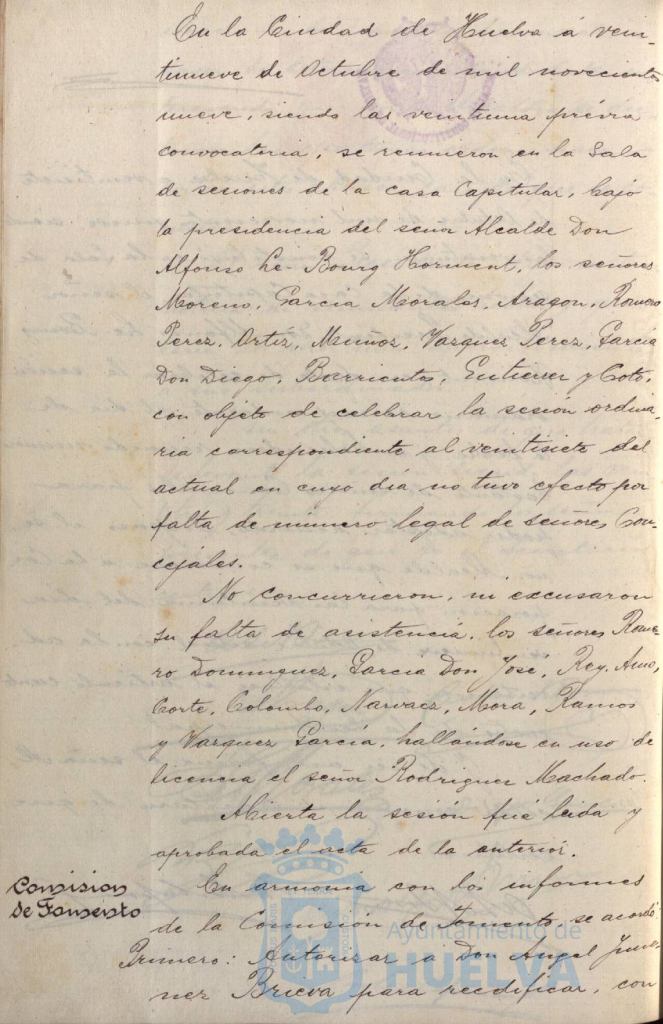 En la Ciudad de Huelva á vein-
tinueve de Octubre de mil novecientos
nueve, siendo las veintiuna prévia
convocatoria, se reunieron en la Sala
de sesiones de la casa Capitular, bajo
la presidencia del señor Alcalde Don
Alfonso Le-Bourg Horment, los señores
Moreno, García Morales, Aragon, Romero
Perez, Ortiz, Muñoz, Vazquez Perez, García
Don Diego, Barrientos, Gutierrez y Coto,
con objeto de celebrar la sesión ordina-
ria correspondiente al veintisiete del
actual en cuyo día no tuvo efecto por
falta de número legal de señores Con-
cejales.
No concurrieron, ni excusaron
su falta de asistencia, los señores Rome-
ro Dominguez, García Don José, Rey,
Corte, Colombo, Narvaez, Mora, Ramos
y Vazquez García, hallándose en uso de
licencia el señor Rodriguez Machado.
Abierta la sesión fué leida y
aprobada el acta de la anterior.
Comision
de Fomento
En armonía con los informes
de la Comisión de Fomento, se acordó
Primero: Autorizar á Don Angel Jime-
nez Brieva para reedificar, con
Ayuntamiento de
HUELVA